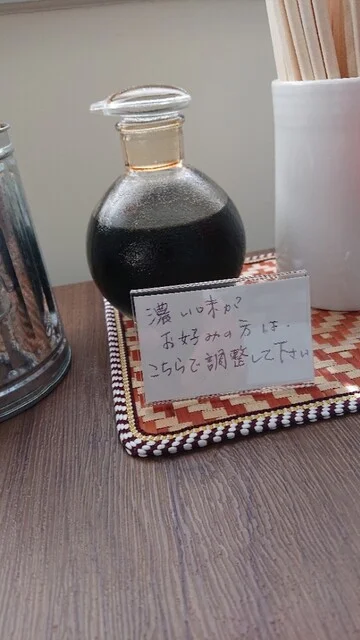 濃い味が
お好みの方は、
こちらで調整して下さい